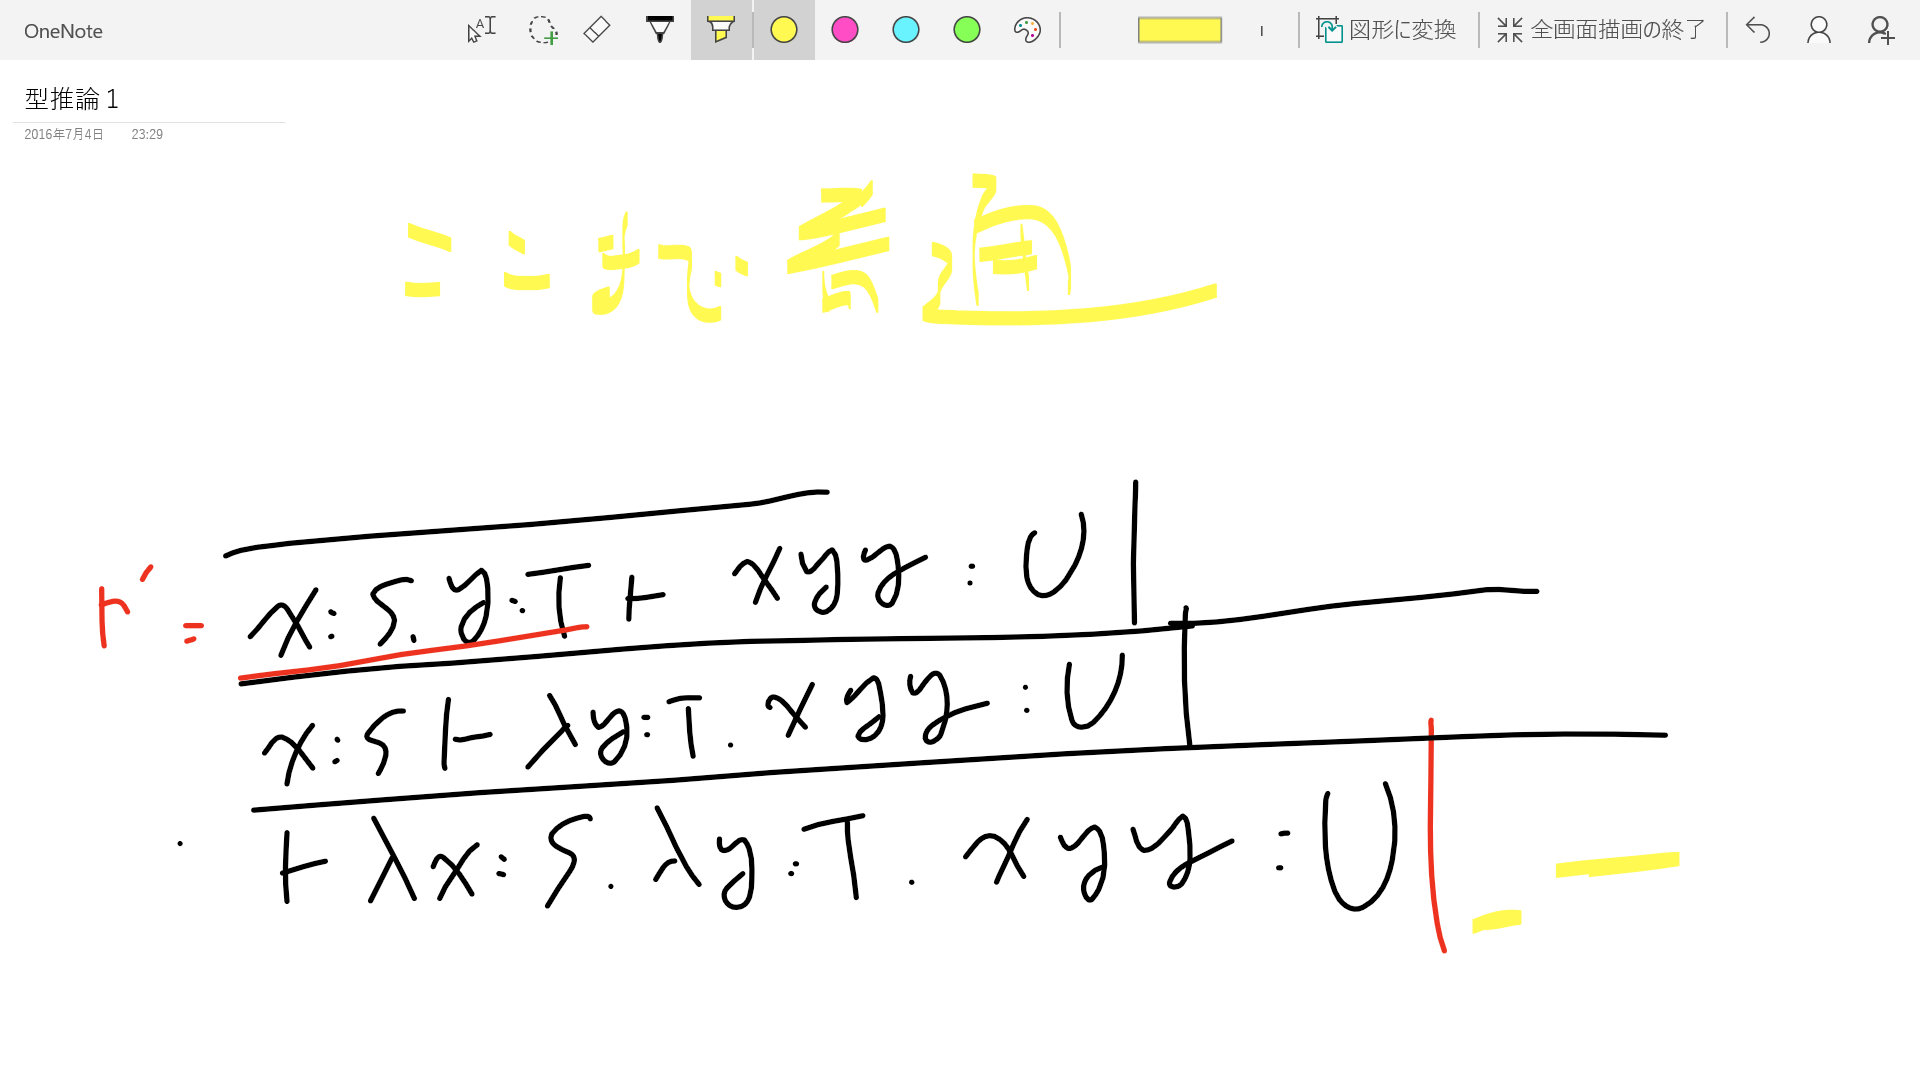 OneNote
図形に変換
全画面描画の終了
型推論 1
2016年7月4日 23:29
ここまで普通
Γ' = x:S, y:T ⊢ xyy : U |
x:S ⊢ λy:T. xyy : U |
⊢ λx:S. λy:T. xyy : U |